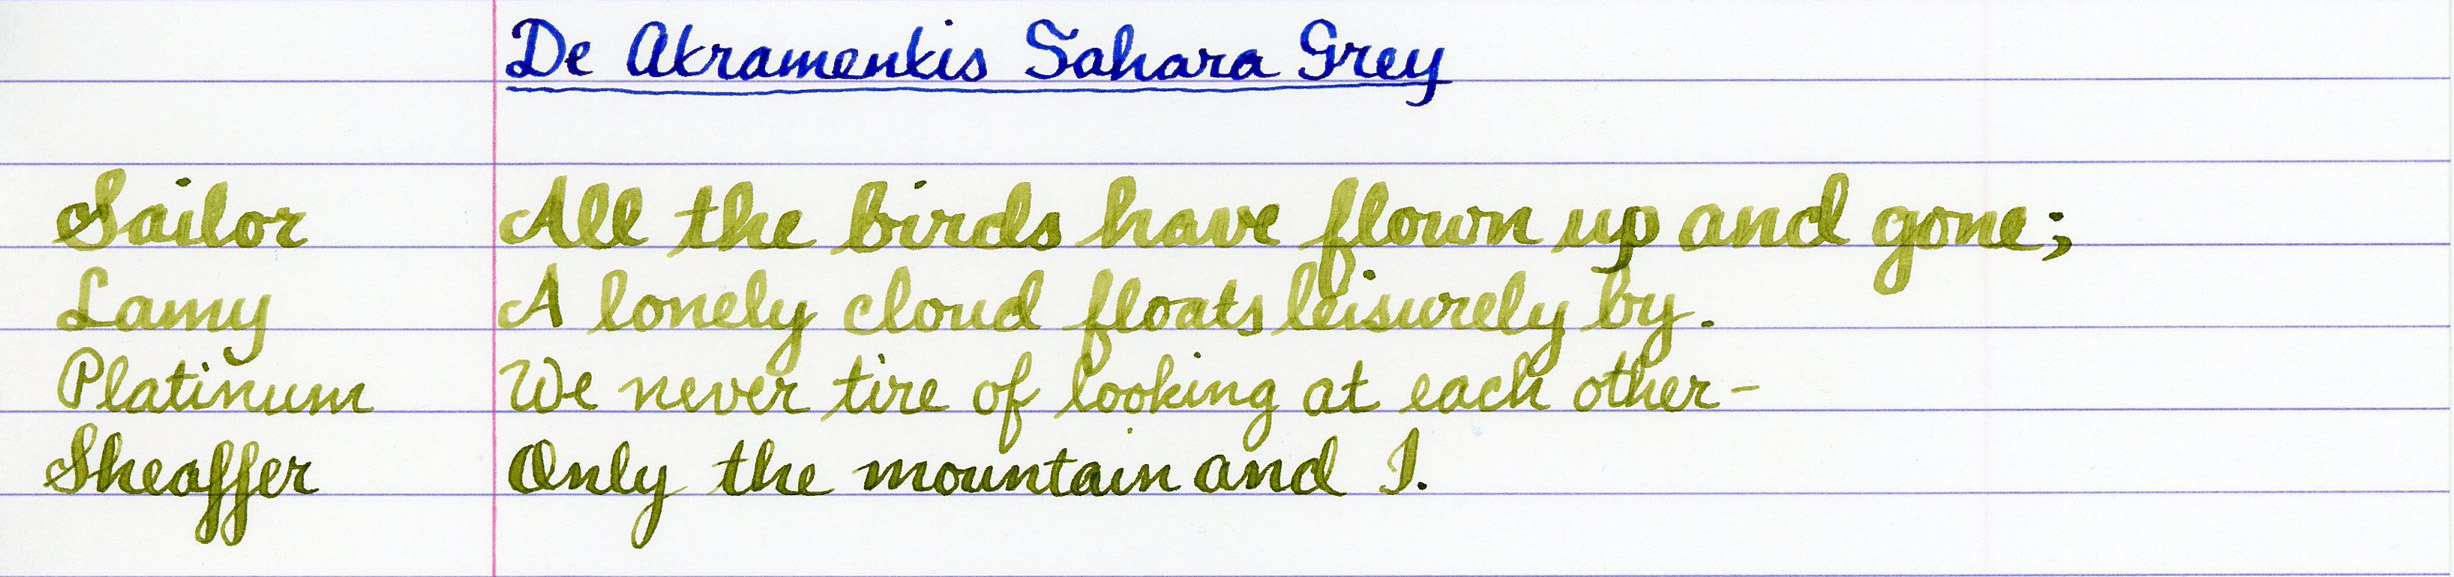 De Atramentis Sahara Grey
Sailor All the birds have flown up and gone;
Lamy A lonely cloud floats leisurely by.
Platinum We never tire of looking at each other-
Sheaffer Only the mountain and I.